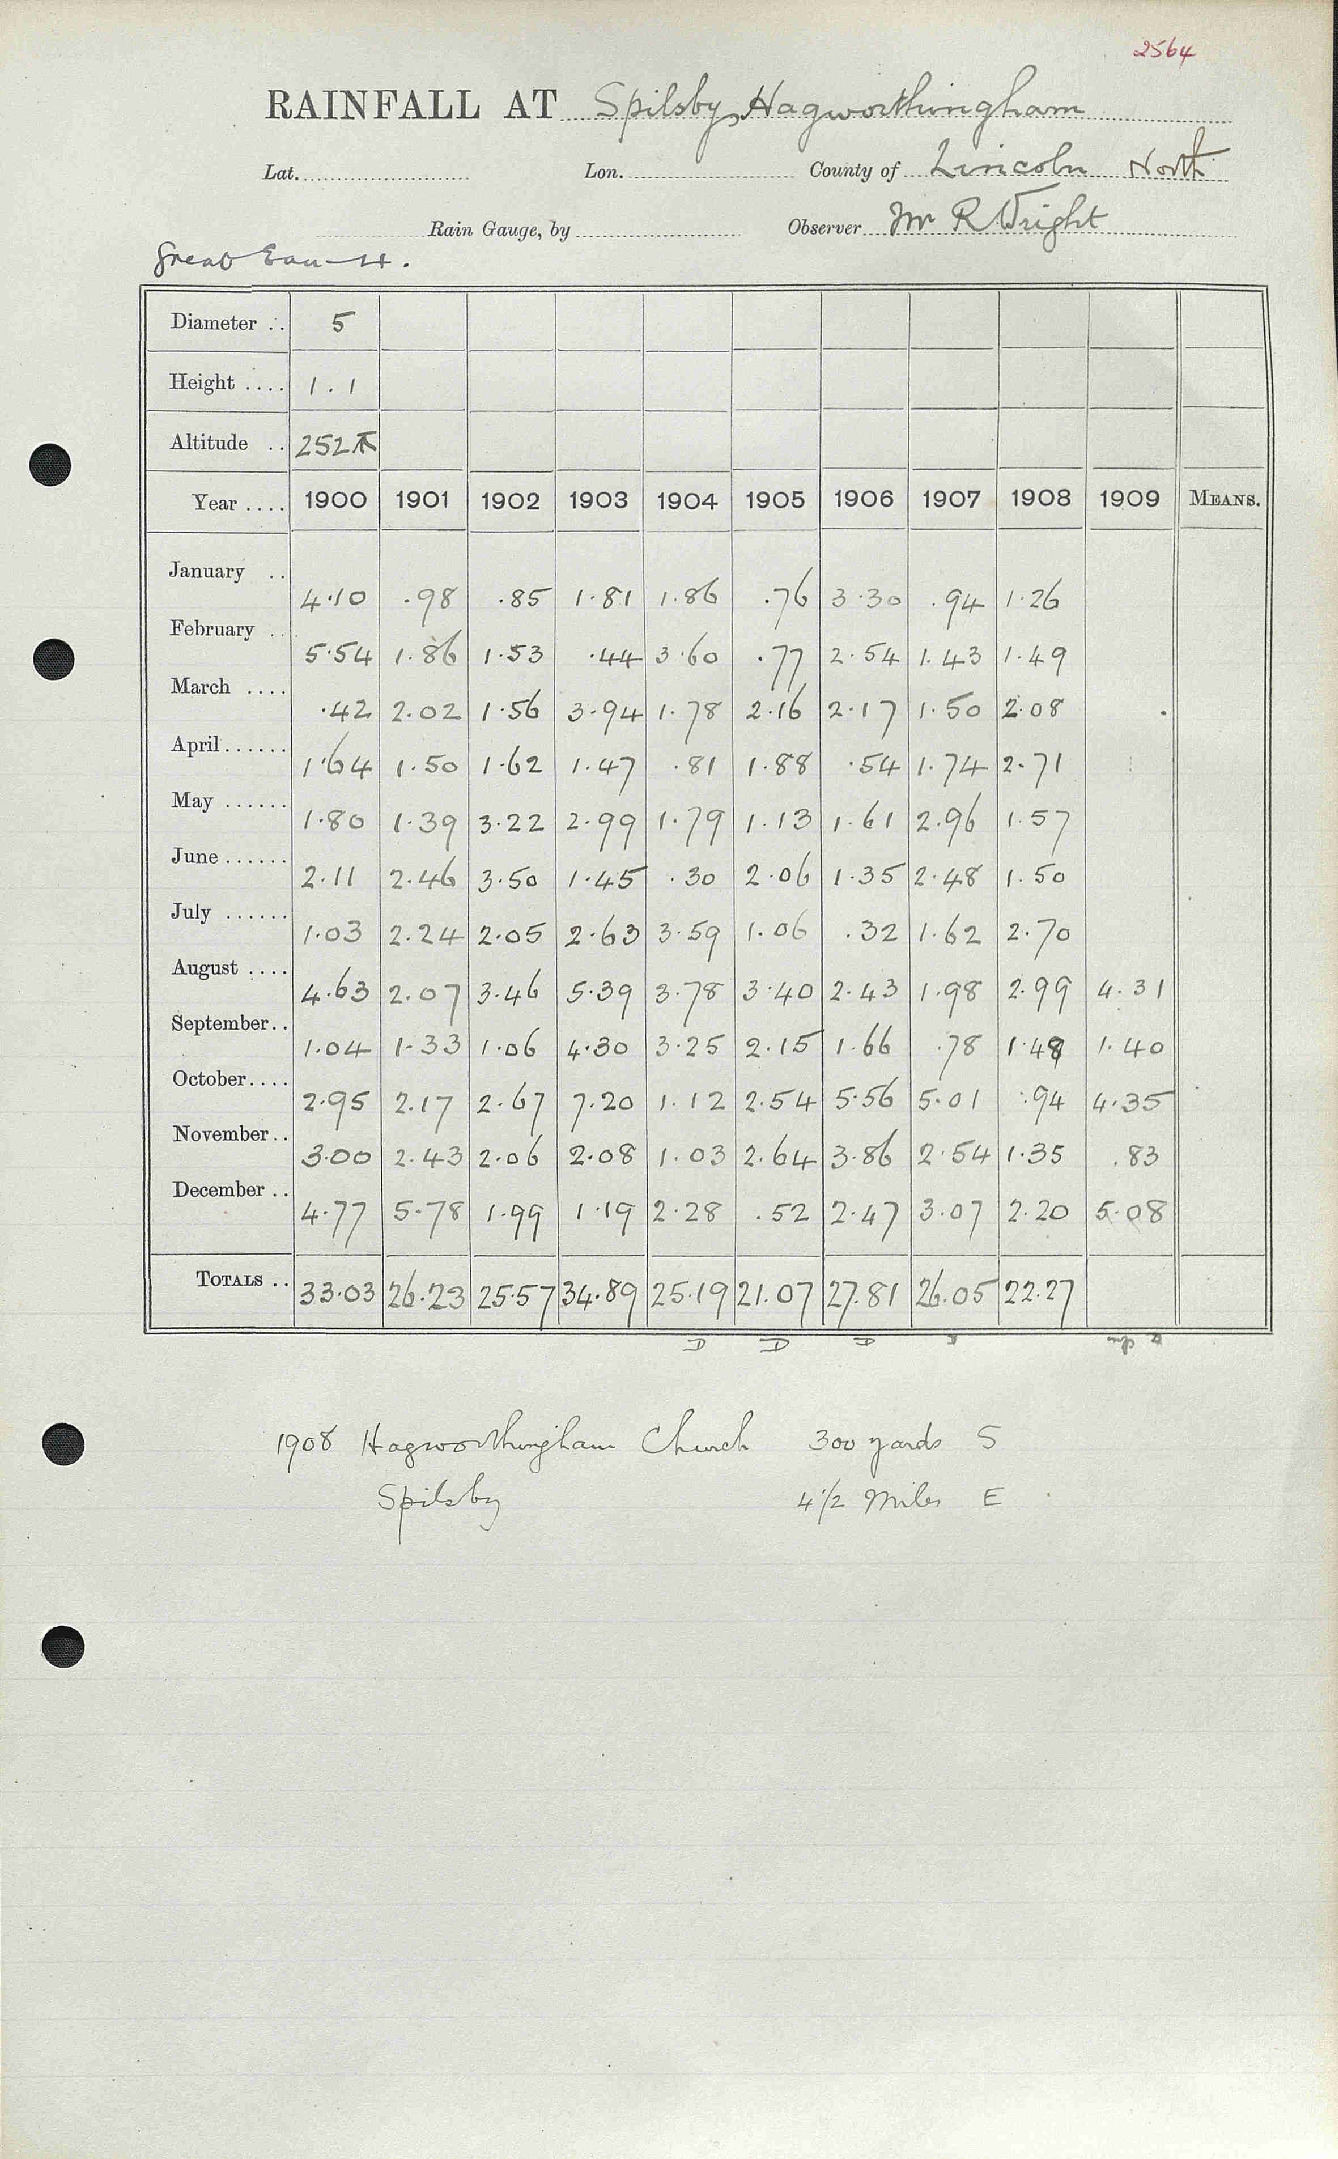 2564
RAINFALL AT Spilsby, Hagworthingham
Lat. Lon. County of Lincoln North
Rain Gauge, by Observer Mr R Wright
Great Eau H.
Diameter .. 5
Height .... 1.1
Altitude .. 252
Year .... 1900 1901 1902 1903 1904 1905 1906 1907 1908 1909 MEANS.
January .. 4.10 .98 .85 1.81 1.86 .76 3.30 .94 1.26
February .. 5.54 1.86 1.53 .44 3.60 .77 2.54 1.43 1.49
March .... .42 2.02 1.56 3.94 1.78 2.16 2.17 1.50 2.08
April ...... 1.64 1.50 1.62 1.47 .81 1.88 .54 1.74 2.71
May ...... 1.80 1.39 3.22 2.99 1.79 1.13 1.61 2.96 1.57
June ...... 2.11 2.46 3.50 1.45 .30 2.06 1.35 2.48 1.50
July ...... 1.03 2.24 2.05 2.63 3.59 1.06 .32 1.62 2.70
August .... 4.63 2.07 3.46 5.39 3.78 3.40 2.43 1.98 2.99 4.31
September .. 1.04 1.33 1.06 4.30 3.25 2.15 1.66 .78 1.48 1.40
October .... 2.95 2.17 2.67 7.20 1.12 2.54 5.56 5.01 .94 4.35
November .. 3.00 2.43 2.06 2.08 1.03 2.64 3.86 2.54 1.35 .83
December .. 4.77 5.78 1.99 1.19 2.28 .52 2.47 3.07 2.20 5.08
TOTALS .. 33.03 26.23 25.57 34.89 25.19 21.07 27.81 26.05 22.27
D D D
1908 Hagworthingham Church 300 yards S
Spilsby 4 1/2 Miles E